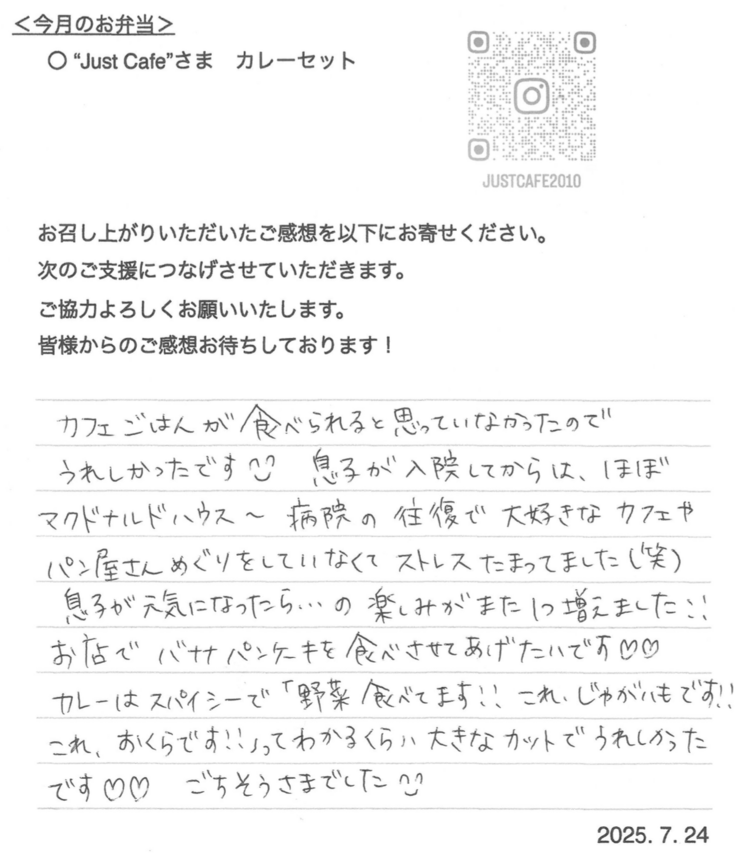 ＜今月のお弁当＞
○ “Just Cafe”さま　カレーセット
JUSTCAFE2010
お召し上がりいただいたご感想を以下にお寄せください。
次のご支援につなげさせていただきます。
ご協力よろしくお願いいたします。
皆様からのご感想お待ちしております！
カフェごはんが食べられると思っていなかったので
うれしかったです 息子が入院してからは、ほぼ
マクドナルドハウス〜病院の往復で大好きなカフェや
パン屋さんめぐりをしていなくてストレスたまってました(笑)
息子が元気になったら…の楽しみがまた1つ増えました!!
お店でバナナパンケーキを食べさせてあげたいです♡♡
カレーはスパイシーで「野菜食べてます!! これ、じゃがいもです!!
これ、おくらです!!」ってわかるくらい大きなカットでうれしかった
です♡♡ ごちそうさまでした
2025. 7. 24